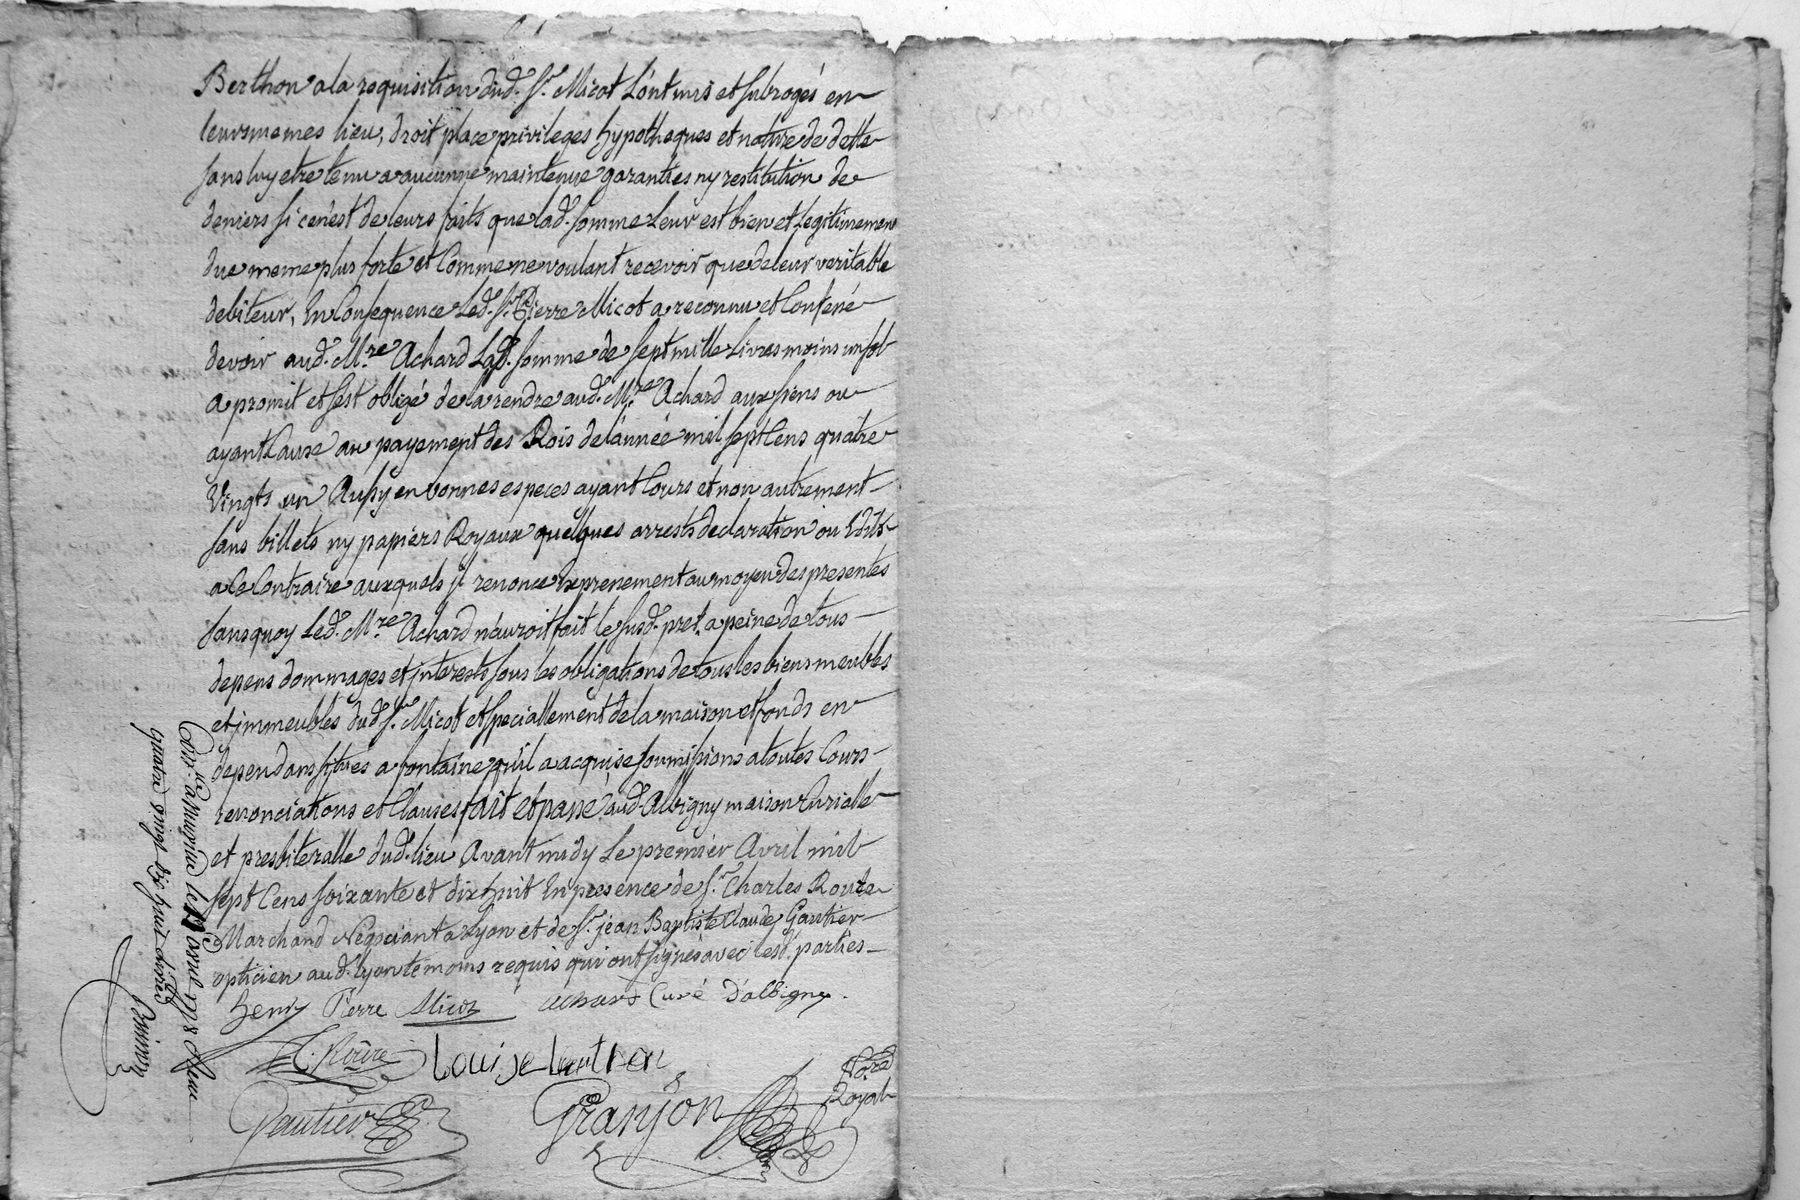 Berthon a la requisition dud. Sr. Micot L'ont mis et subrogés en
leurs memes lieu, droit place privileges hypotheques et nature de dette
sans luy etre tenu a aucunne maintenue garanties ny restitution de
deniers si cen'est de leurs faits que lad. somme Leur est bien et legitimement
due meme plus forte et Comme ne voulant recevoir que de leur veritable
debiteur, En Consequence Led. Sr. Pierre Micot a reconnu et Confené
devoir aud. Mre Achard Lad. somme de sept mille Livres moins un sol
a promit et s'est obligé de la rendre aud. Mre Achard aux siens ou
ayant Cause au payement des Rois de l'année mil sept Cens quatre
Vingts un Aussy en bonnes especes ayant Cours et non autrement
sans billets ny papiers Royaux quelques arrests declaration ou Edits
a Ce Contraire auxquels il renonce Exprenement au moyen des presentes
sans quoy Led. Mre Achard n'auroit fait le susd. pret a peine de tous
depens dommages et interests sous les obligations de tous les biens meubles
et immeubles dud. Sr. Micot et speciallement de la maison et fonds en
dependans situes a fontaine qu'il a acquise soumissions a toutes Cours
renonciations et Clauses fait et passé aud. Albigny maison Curialle
et presbiteralle dud. lieu Avant midy Le premier Avril mil
sept Cens soixante et dix huit En presence de Sr. Charles Roure
Marchand Négociant a Lyon et de Sr. jean Baptiste Claude Gautier
opticien aud. Lyon temoins requis qui ont signés avec lesd. parties
henry Pierre Micot Achard Curé D'albigny.
C. Roure Louise berthon
Gautier Granjon Nore
Royal
le 11 avril 1778
quatre vingt dix huit livres